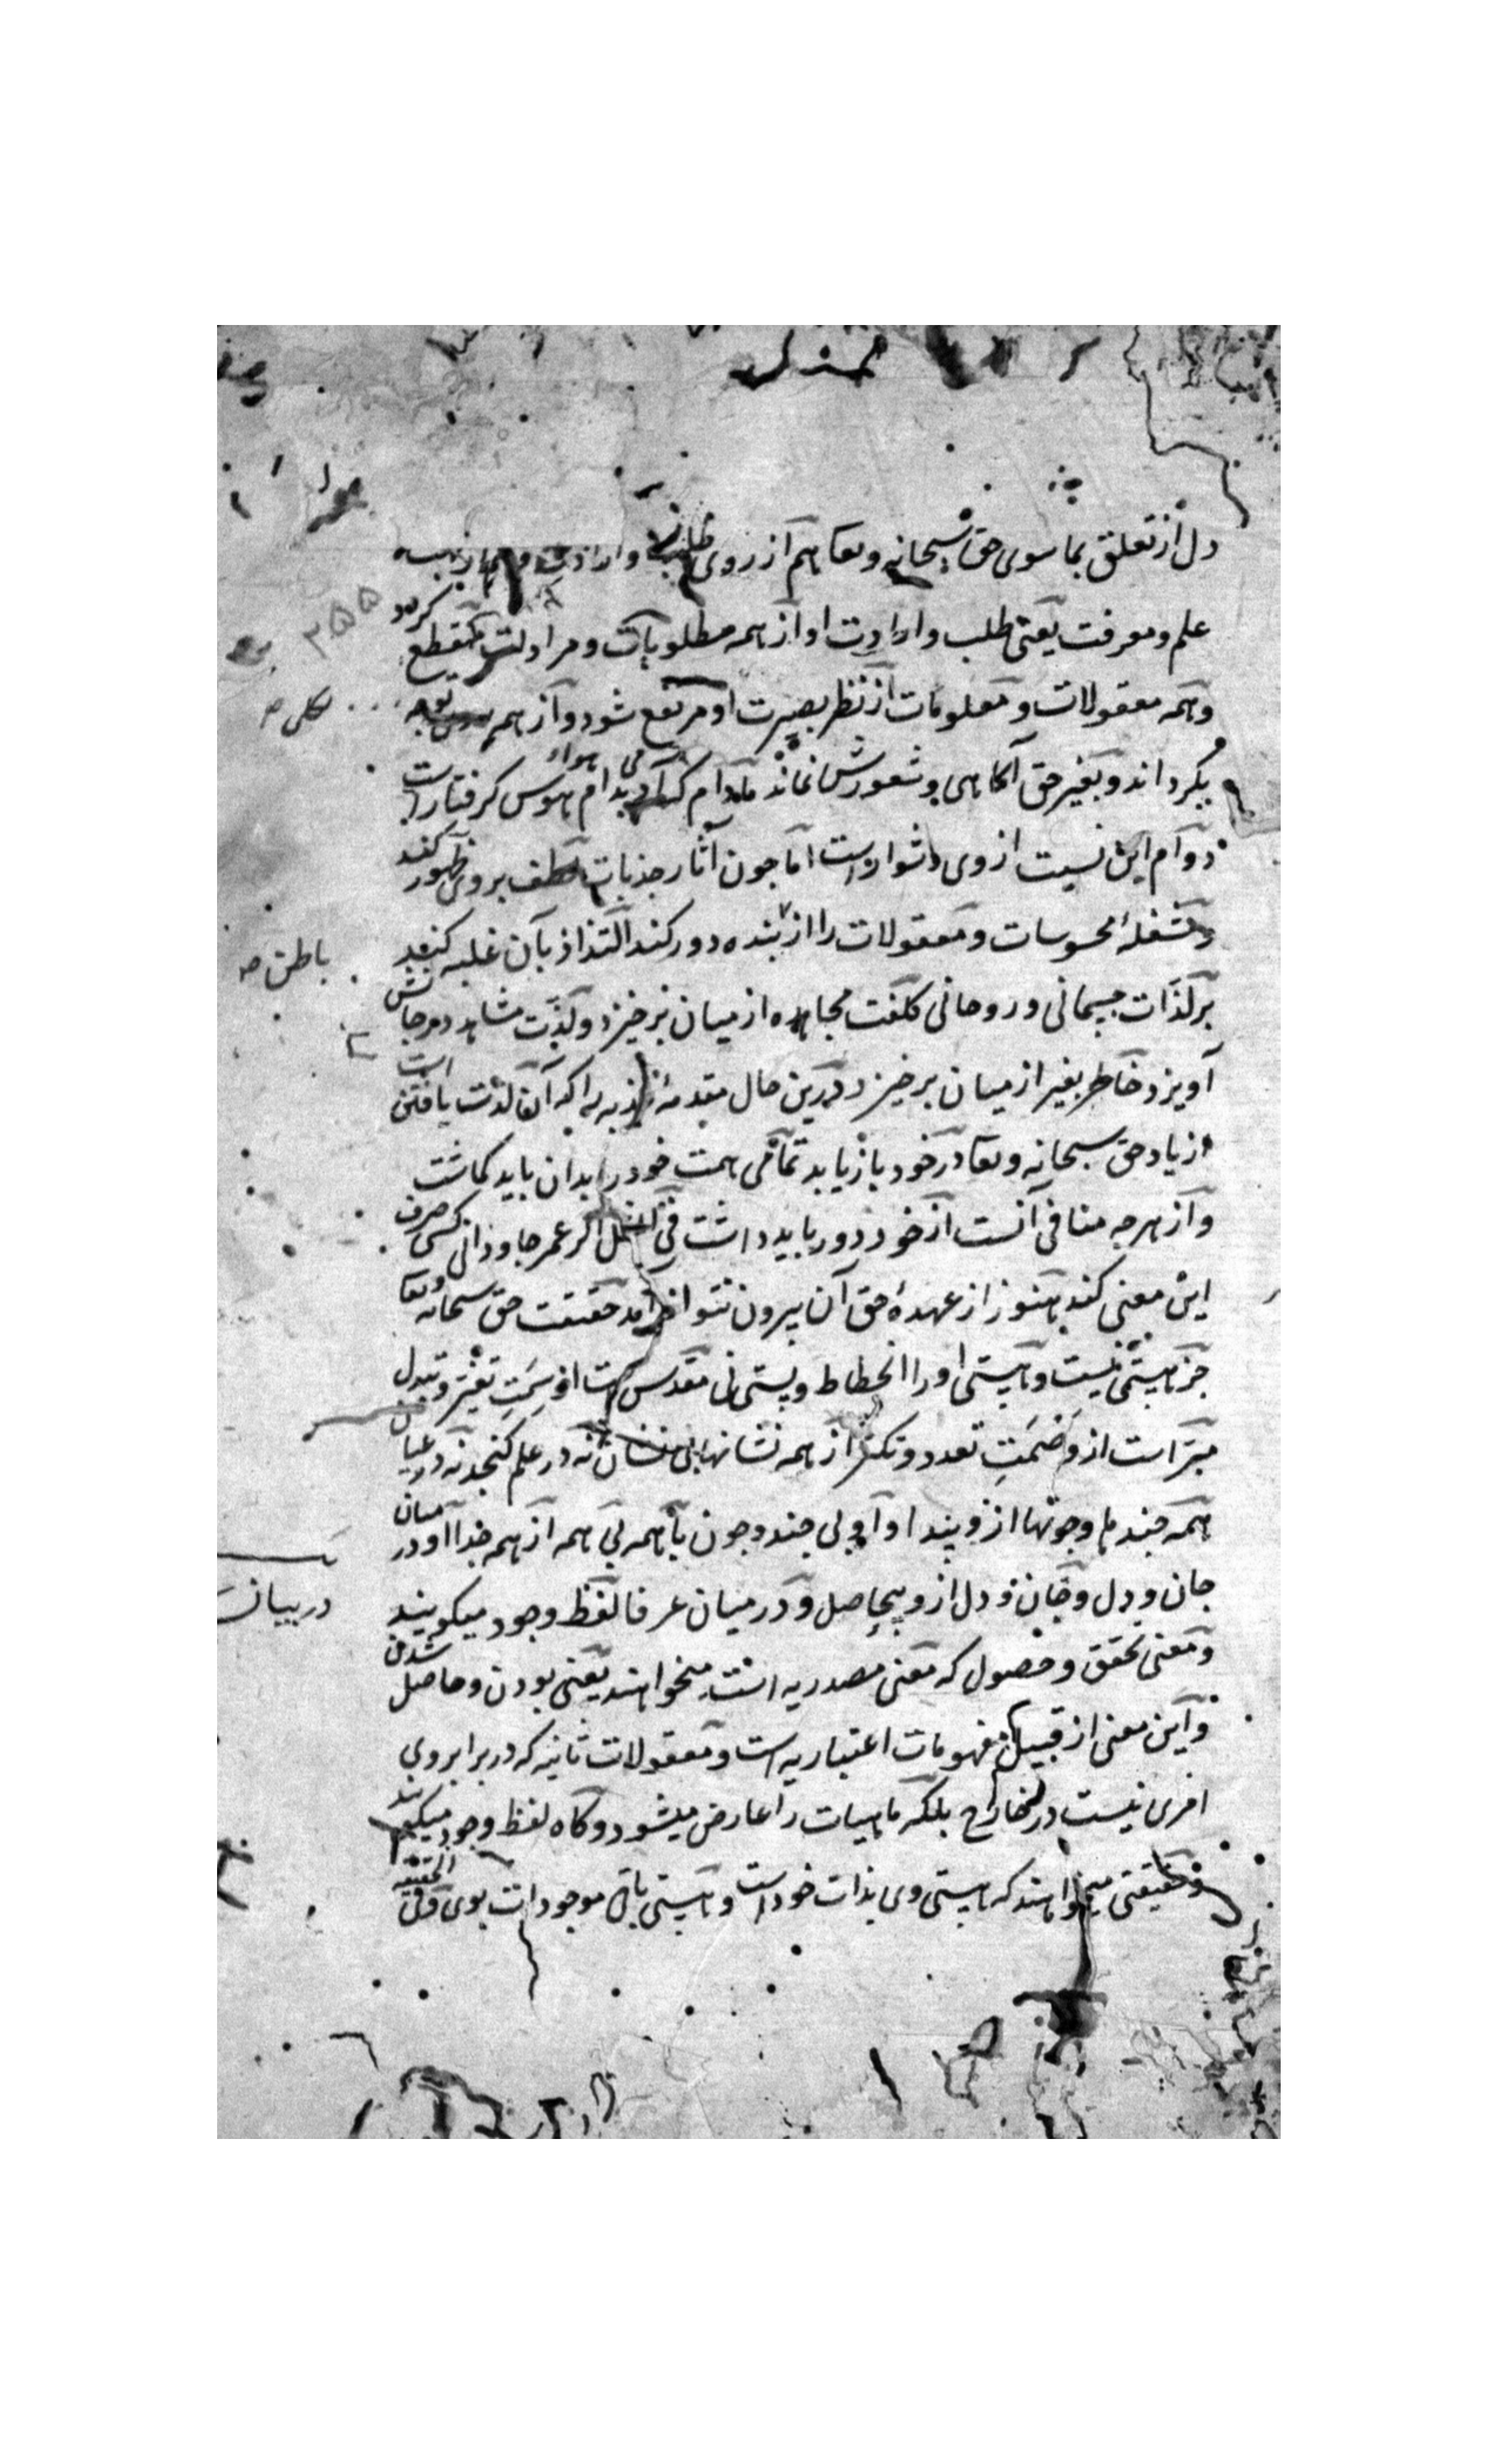 دل از تعلق بماسوی حق سبحانه وتعا هم از روی طلب وارادت وهم از جهت
علم ومعرفت یعنی طلب وارادت او از همه مطلوبات ومرادات منقطع کردد
وهمه معقولات ومعلومات از نظر بصیرت او مرتفع شود واز همه توجه
بکرداند وبغیر حق آکاهی وشعورش نماند مادام که آدمی بدام هواء هوس کرفتار است
دوام این نسبت از وی دشوار است اما چون آثار جذبات لطف بروی ظهور کند
ومشغلهٔ محسوسات ومعقولات را از بنده دور کند التذاذ بآن غلبه کند
بر لذات جسمانی وروحانی کلفت مجاهده از میان برخیزد ولذت مشاهده در جانش
آویزد خاطر بغیر از میان برخیزد درین حال مقدمهٔ جذبه را که آن لذت یافتن است
از یاد حق سبحانه وتعا در خود بازیابد تمامی همت خود را بدان باید کماشت
واز هرچه منافی آنست از خود دور باید داشت فی المثل اکر عمر جاودانی کسی صرف
این معنی کند هنوز از عهدهٔ حق آن بیرون نتواند آمد حقیقت حق سبحانه وتعا
جز هستی نیست وهستی او را انحطاط وپستی نی مقدس است از سمت تغیر وتبدل
مبرّاست از وصمت تعدد وتکثر از همه نشانها بی نشان نه در علم کنجد نه در عیان
همه چندها وچونها ازو پیدا واو بی چند وچون با همه بی همه از همه جدا او در میان
جان ودل وجان ودل ازو بیحاصل ودر میان عرفا لفظ وجود میکویند
ومعنی تحقق وحصول که معنی مصدریه است میخواهند یعنی بودن وحاصل شدن
واین معنی از قبیل مفهومات اعتباریه است ومعقولات ثانیه که در برابر وی
امری نیست در خارج بلکه ماهیات را عارض میشود وکاه لفظ وجود میکویند
وحقیقتی میخواهند که هستی وی بذات خود است وهستی باقی موجودات بوی وفی الحقیقه
۲۵۵
بکلی صح
باطن صح
در بیان